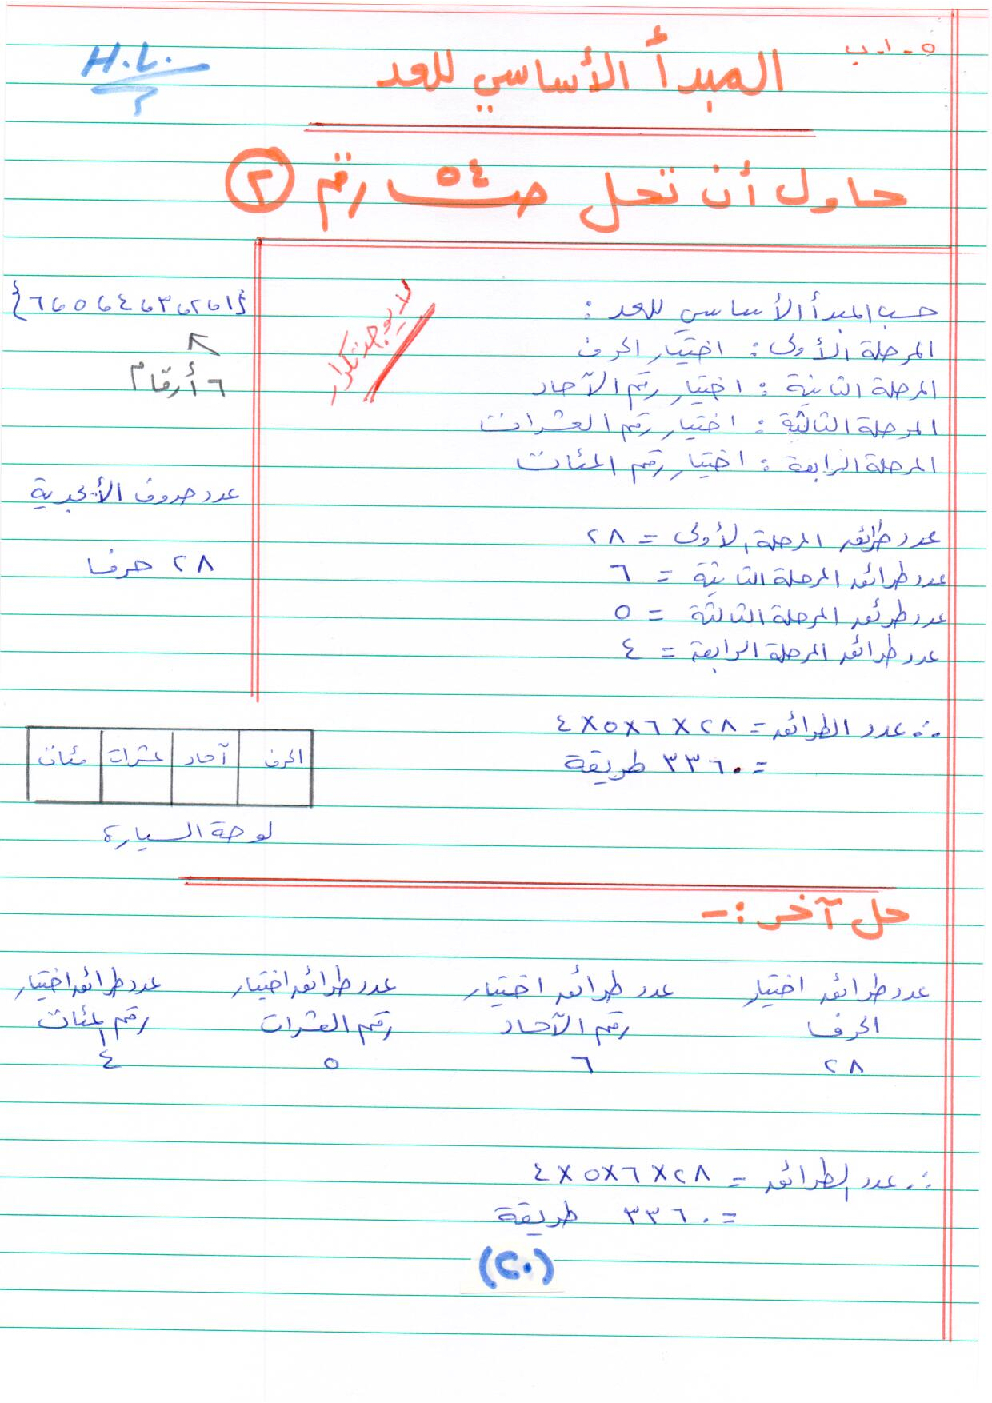 ٥-١-ب
H.L.
المبدأ الأساسي للعد
حاول أن تحل صـ ٥٤ رقم ٢
حسب المبدأ الأساسي للعد :
المرحلة الأولى : اختيار الحرف
المرحلة الثانية : اختيار رقم الآحاد
المرحلة الثالثة : اختيار رقم العشرات
المرحلة الرابعة : اختيار رقم المئات
لا يوجد تكرار
{٦،٥،٤،٣،٢،١}
٦ أرقام
عدد حروف الأبجدية
٢٨ حرفا
عدد طرائق المرحلة الأولى = ٢٨
عدد طرائق المرحلة الثانية = ٦
عدد طرائق المرحلة الثالثة = ٥
عدد طرائق المرحلة الرابعة = ٤
∴ عدد الطرائق = ٢٨×٦×٥×٤
= ٣٣٦٠ طريقة
الحرف آحاد عشرات مئات
لوحة السيارة
حل آخر :-
عدد طرائق اختيار الحرف
٢٨
عدد طرائق اختيار رقم الآحاد
٦
عدد طرائق اختيار رقم العشرات
٥
عدد طرائق اختيار رقم المئات
٤
∴ عدد الطرائق = ٢٨×٦×٥×٤
= ٣٣٦٠ طريقة
(٢٠)